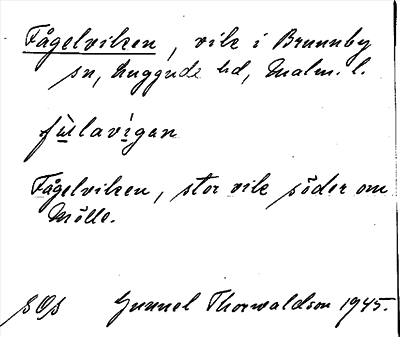 Fågelviken, vik i Brunnby
sn, Luggude hd, Malm. l.
fùlavìgan
Fågelviken, stor vik söder om
Mölle.
SOs Gunnel Thorwaldson 1945.